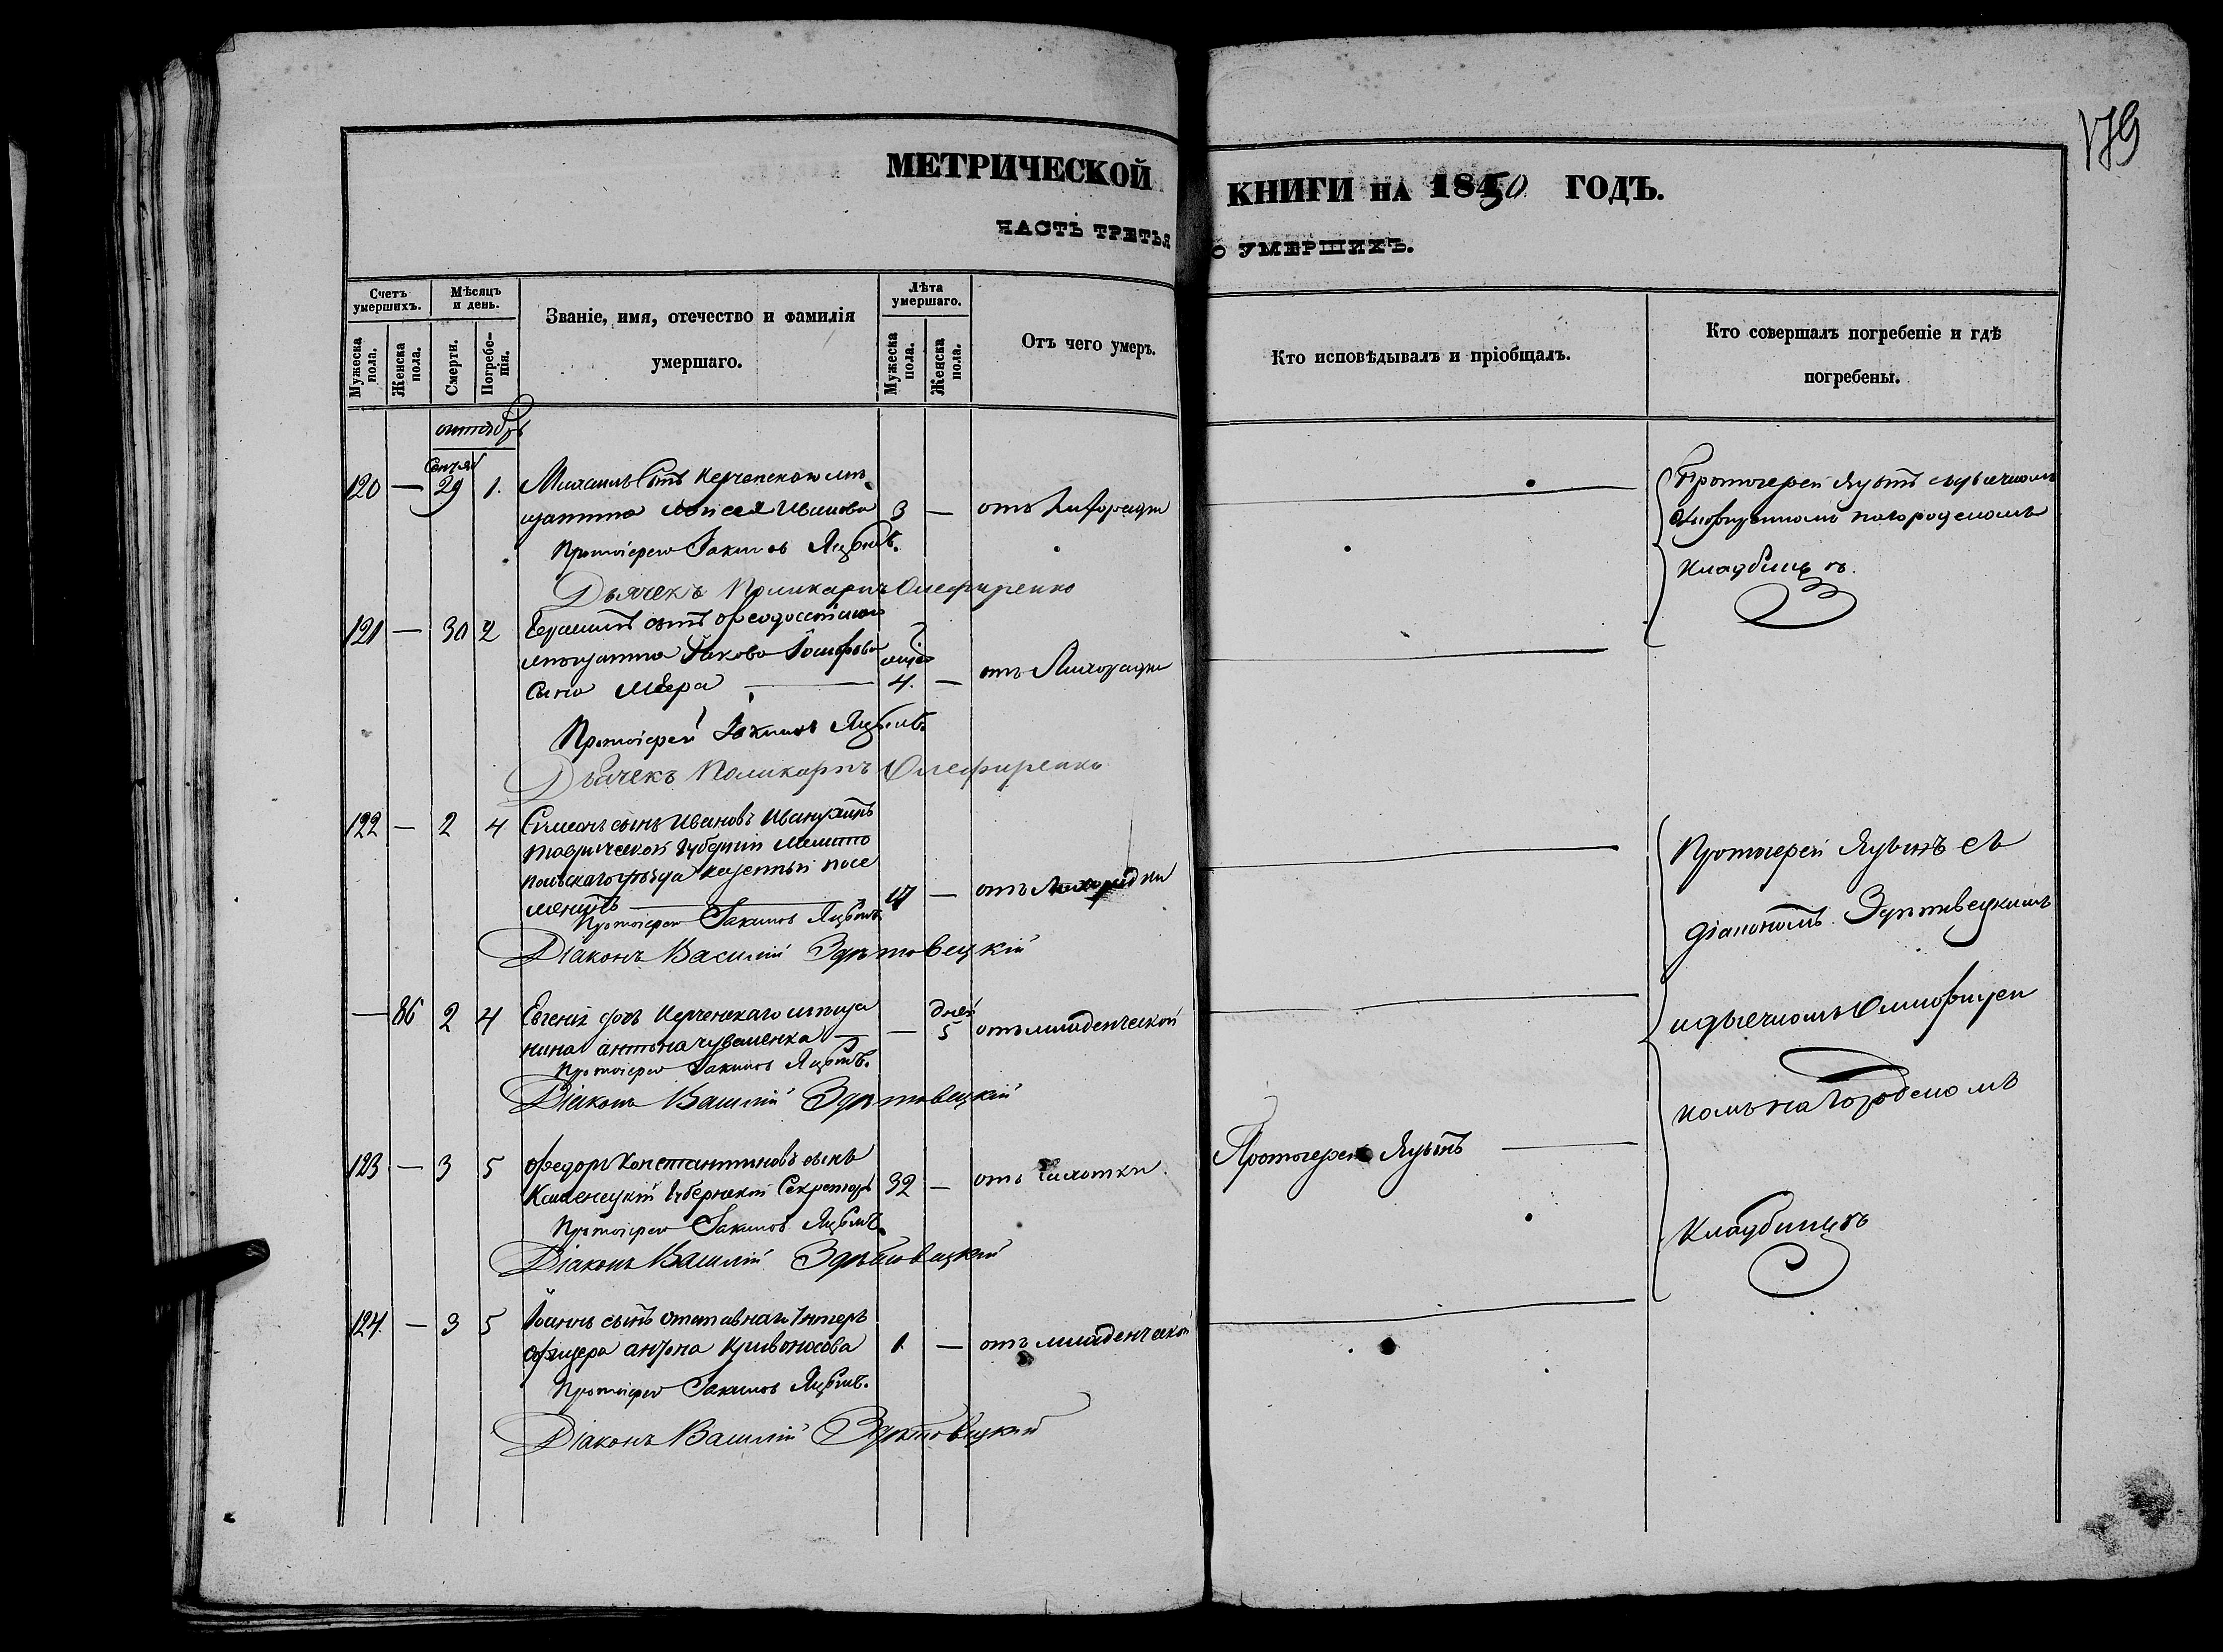 179
МЕТРИЧЕСКОЙ КНИГИ НА 1850 ГОДЪ.
ЧАСТЬ ТРЕТЬЯ О УМЕРШИХЪ.
Счетъ умершихъ.
Мужеска пола.
Женска пола.
Мѣсяцъ и день.
Смерти.
Погребенія.
Званіе, имя, отечество и фамилія умершаго.
Лѣта умершаго.
Мужеска пола.
Женска пола.
Отъ чего умеръ.
Кто исповѣдывалъ и пріобщалъ.
Кто совершалъ погребеніе и гдѣ погребены.
октябрь
Сентяб
120 — 29 1. Михаилъ сынъ Керченскаго мѣ
щанина Моисея Иванова 3 — отъ лихорадки
Протоіерей Іакимъ
Дьячекъ Поликарпъ Олефиренко
Протоіерей съ дьячкомъ
Олефиренкомъ на городскомъ
Кладбищѣ
121 — 30 2 сынъ Феодосійскаго
мѣщанина Іакова Іосифова
Сына 4. — отъ Лихорадки
Протоіерей Іакимъ
Дьячекъ Поликарпъ Олефиренко
122 — 2 4 Симеонъ сынъ Ивановъ
Таврической Губерніи Мелито
польскаго уѣзда казенный посе
ленецъ — 17 — отъ лихорадки
Протоіерей Іакимъ
Діаконъ Василій Здитовецкій
Протоіерей съ
діакономъ Здитовецкимъ
— 86 2 4 Евгенія дочь Керченскаго мѣща
нина Антона — — дней 5 отъ младенческой
Протоіерей Іакимъ
Діаконъ Василій Здитовецкій
и дьячкомъ Олиофирен
комъ на городскомъ
123 — 3 5 Федоръ Константиновъ сынъ
Каменецкій Губернскій Секретарь 32 — отъ чахотки Протоіерей
Протоіерей Іакимъ
Діаконъ Василій Здитовецкій
Кладбищѣ
124. — 3 5 Іоаннъ сынъ отставнаго Унтеръ
офицера Антона Кривоносова 1. — отъ младенческой
Протоіерей Іакимъ
Діаконъ Василій Здитовецкій